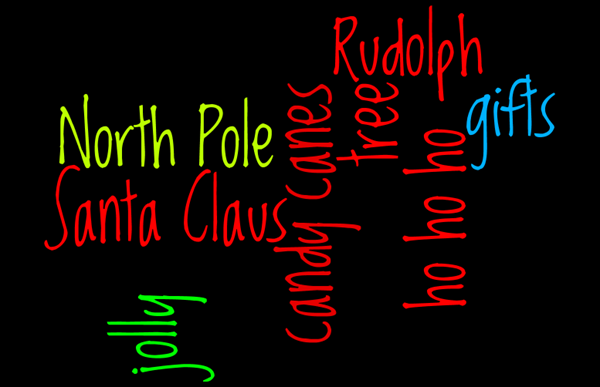 Rudolph
gifts
North Pole
Santa Claus
candy canes
tree
ho ho ho
jolly